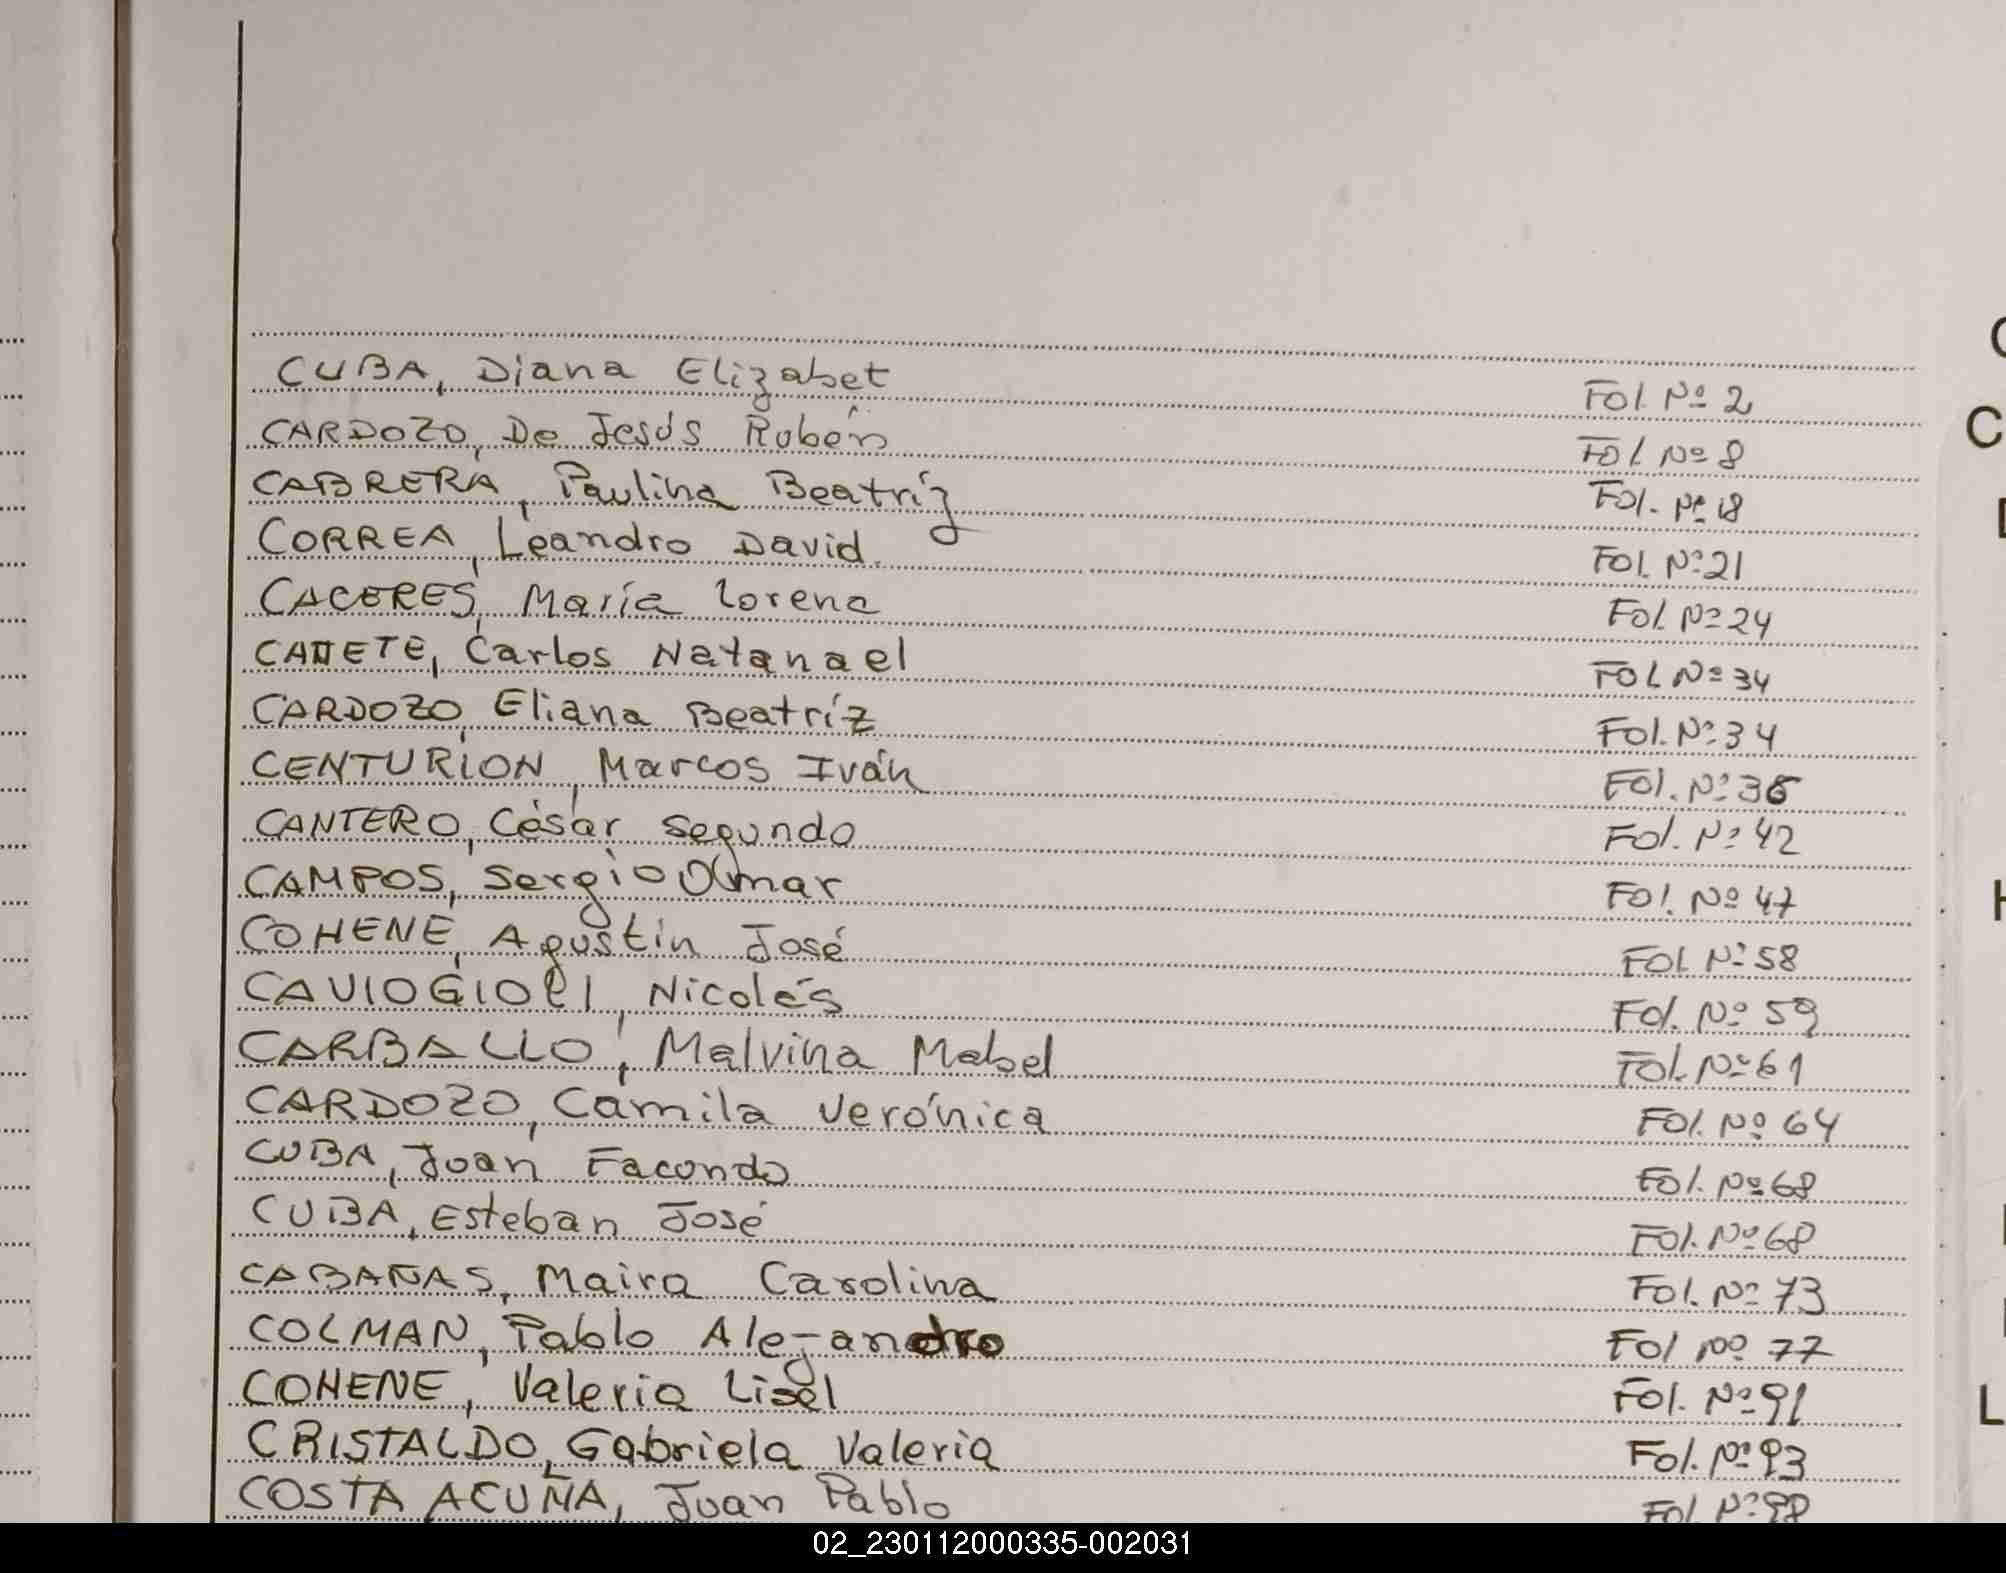 CUBA, Diana Elizabet Fol. Nº 2
CARDOZO, De Jesús Rubén Fol. Nº 8
CABRERA, Paulina Beatríz Fol. Nº 18
CORREA, Leandro David. Fol. Nº 21
CACERES, María Lorena Fol. Nº 24
CAÑETE, Carlos Natanael Fol. Nº 34
CARDOZO, Eliana Beatríz Fol. Nº 34
CENTURIÓN, Marcos Iván Fol. Nº 36
CANTERO, César Segundo Fol. Nº 42
CAMPOS, Sergio Omar Fol. Nº 47
COHENE, Agustín José Fol. Nº 58
Nicolás Fol. Nº 59
CARBALLO, Malvina Mabel Fol. Nº 61
CARDOZO, Camila Verónica Fol. Nº 64
CUBA, Juan Facundo Fol. Nº 68
CUBA, Esteban José Fol. Nº 68
CABAÑAS, Maira Carolina Fol. Nº 73
COLMAN, Pablo Alejandro Fol Nº 77
COHENE, Valeria Lisel Fol. Nº 91
CRISTALDO, Gabriela Valeria Fol. Nº 93
COSTA ACUÑA, Juan Pablo Fol. Nº
02_230112000335-002031